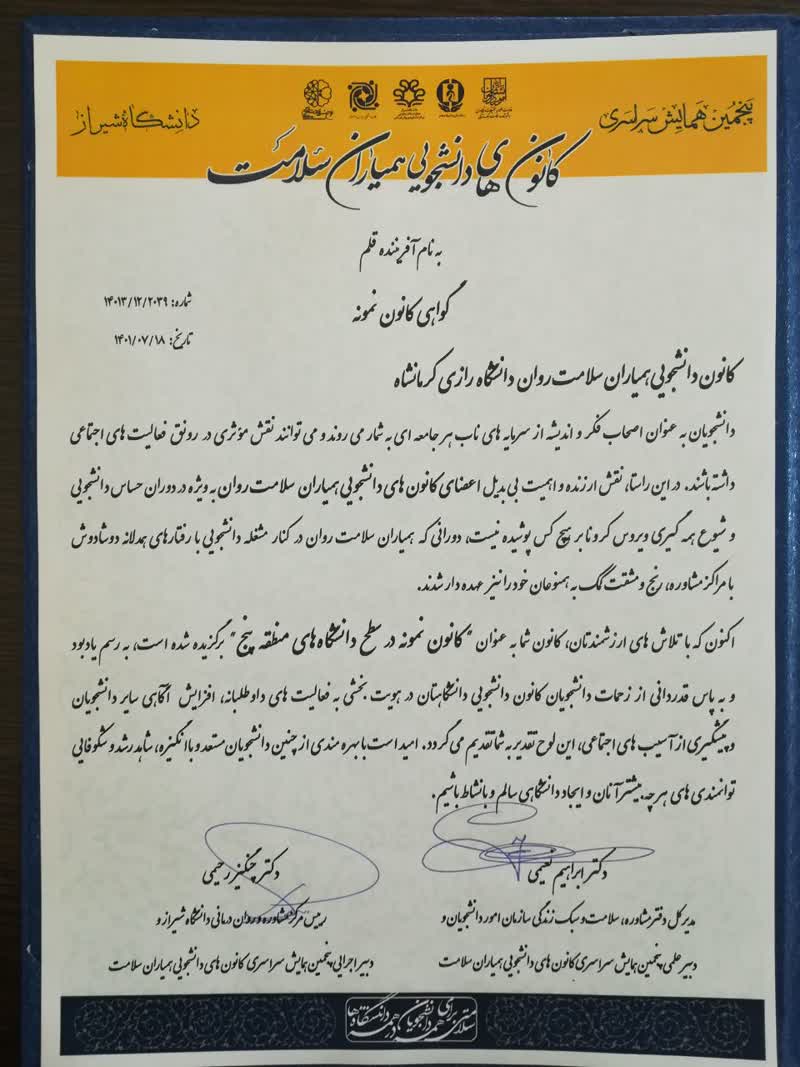 پنجمین همایش سراسری
دانشگاه شیراز
کانون های دانشجویی همیاران سلامت
به نام آفریننده قلم
گواهی کانون نمونه
شماره: ۱۴۰۱۳/۱۲/۲۰۳۹
تاریخ: ۱۴۰۱/۰۷/۱۸
کانون دانشجویی همیاران سلامت روان دانشگاه رازی کرمانشاه
دانشجویان به عنوان اصحاب فکر و اندیشه از سرمایه های ناب هر جامعه ای به شمار می روند و می توانند نقش مؤثری در رونق فعالیت های اجتماعی
داشته باشند. در این راستا، نقش ارزنده و اهمیت بی بدیل اعضای کانون های دانشجویی همیاران سلامت روان به ویژه در دوران حساس دانشجویی
و شیوع همه گیری ویروس کرونا بر هیچ کس پوشیده نیست، دورانی که همیاران سلامت روان در کنار مشغله دانشجویی با رفتارهای همدلانه دوشادوش
با مراکز مشاوره، رنج و مشقت کمک به همنوعان خود را نیز عهده دار شدند.
اکنون که با تلاش های ارزشمندتان، کانون شما به عنوان "کانون نمونه در سطح دانشگاه های منطقه پنج" برگزیده شده است، به رسم یادبود
و به پاس قدردانی از زحمات دانشجویان کانون دانشجویی دانشگاهتان در هویت بخشی به فعالیت های داوطلبانه، افزایش آگاهی سایر دانشجویان
و پیشگیری از آسیب های اجتماعی، این لوح تقدیر به شما تقدیم می گردد. امید است با بهره مندی از چنین دانشجویان مستعد و با انگیزه، شاهد رشد و شکوفایی
توانمندی های هرچه بیشتر آنان و ایجاد دانشگاهی سالم و با نشاط باشیم.
دکتر ابراهیم نعیمی
مدیر کل دفتر مشاوره، سلامت و سبک زندگی سازمان امور دانشجویان و
دبیر علمی پنجمین همایش سراسری کانون های دانشجویی همیاران سلامت
دکتر چنگیز رحیمی
رییس مرکز مشاوره و روان درمانی دانشگاه شیراز و
دبیر اجرایی پنجمین همایش سراسری کانون های دانشجویی همیاران سلامت
سلامتی برای همه دانشجویان در همه دانشگاه ها